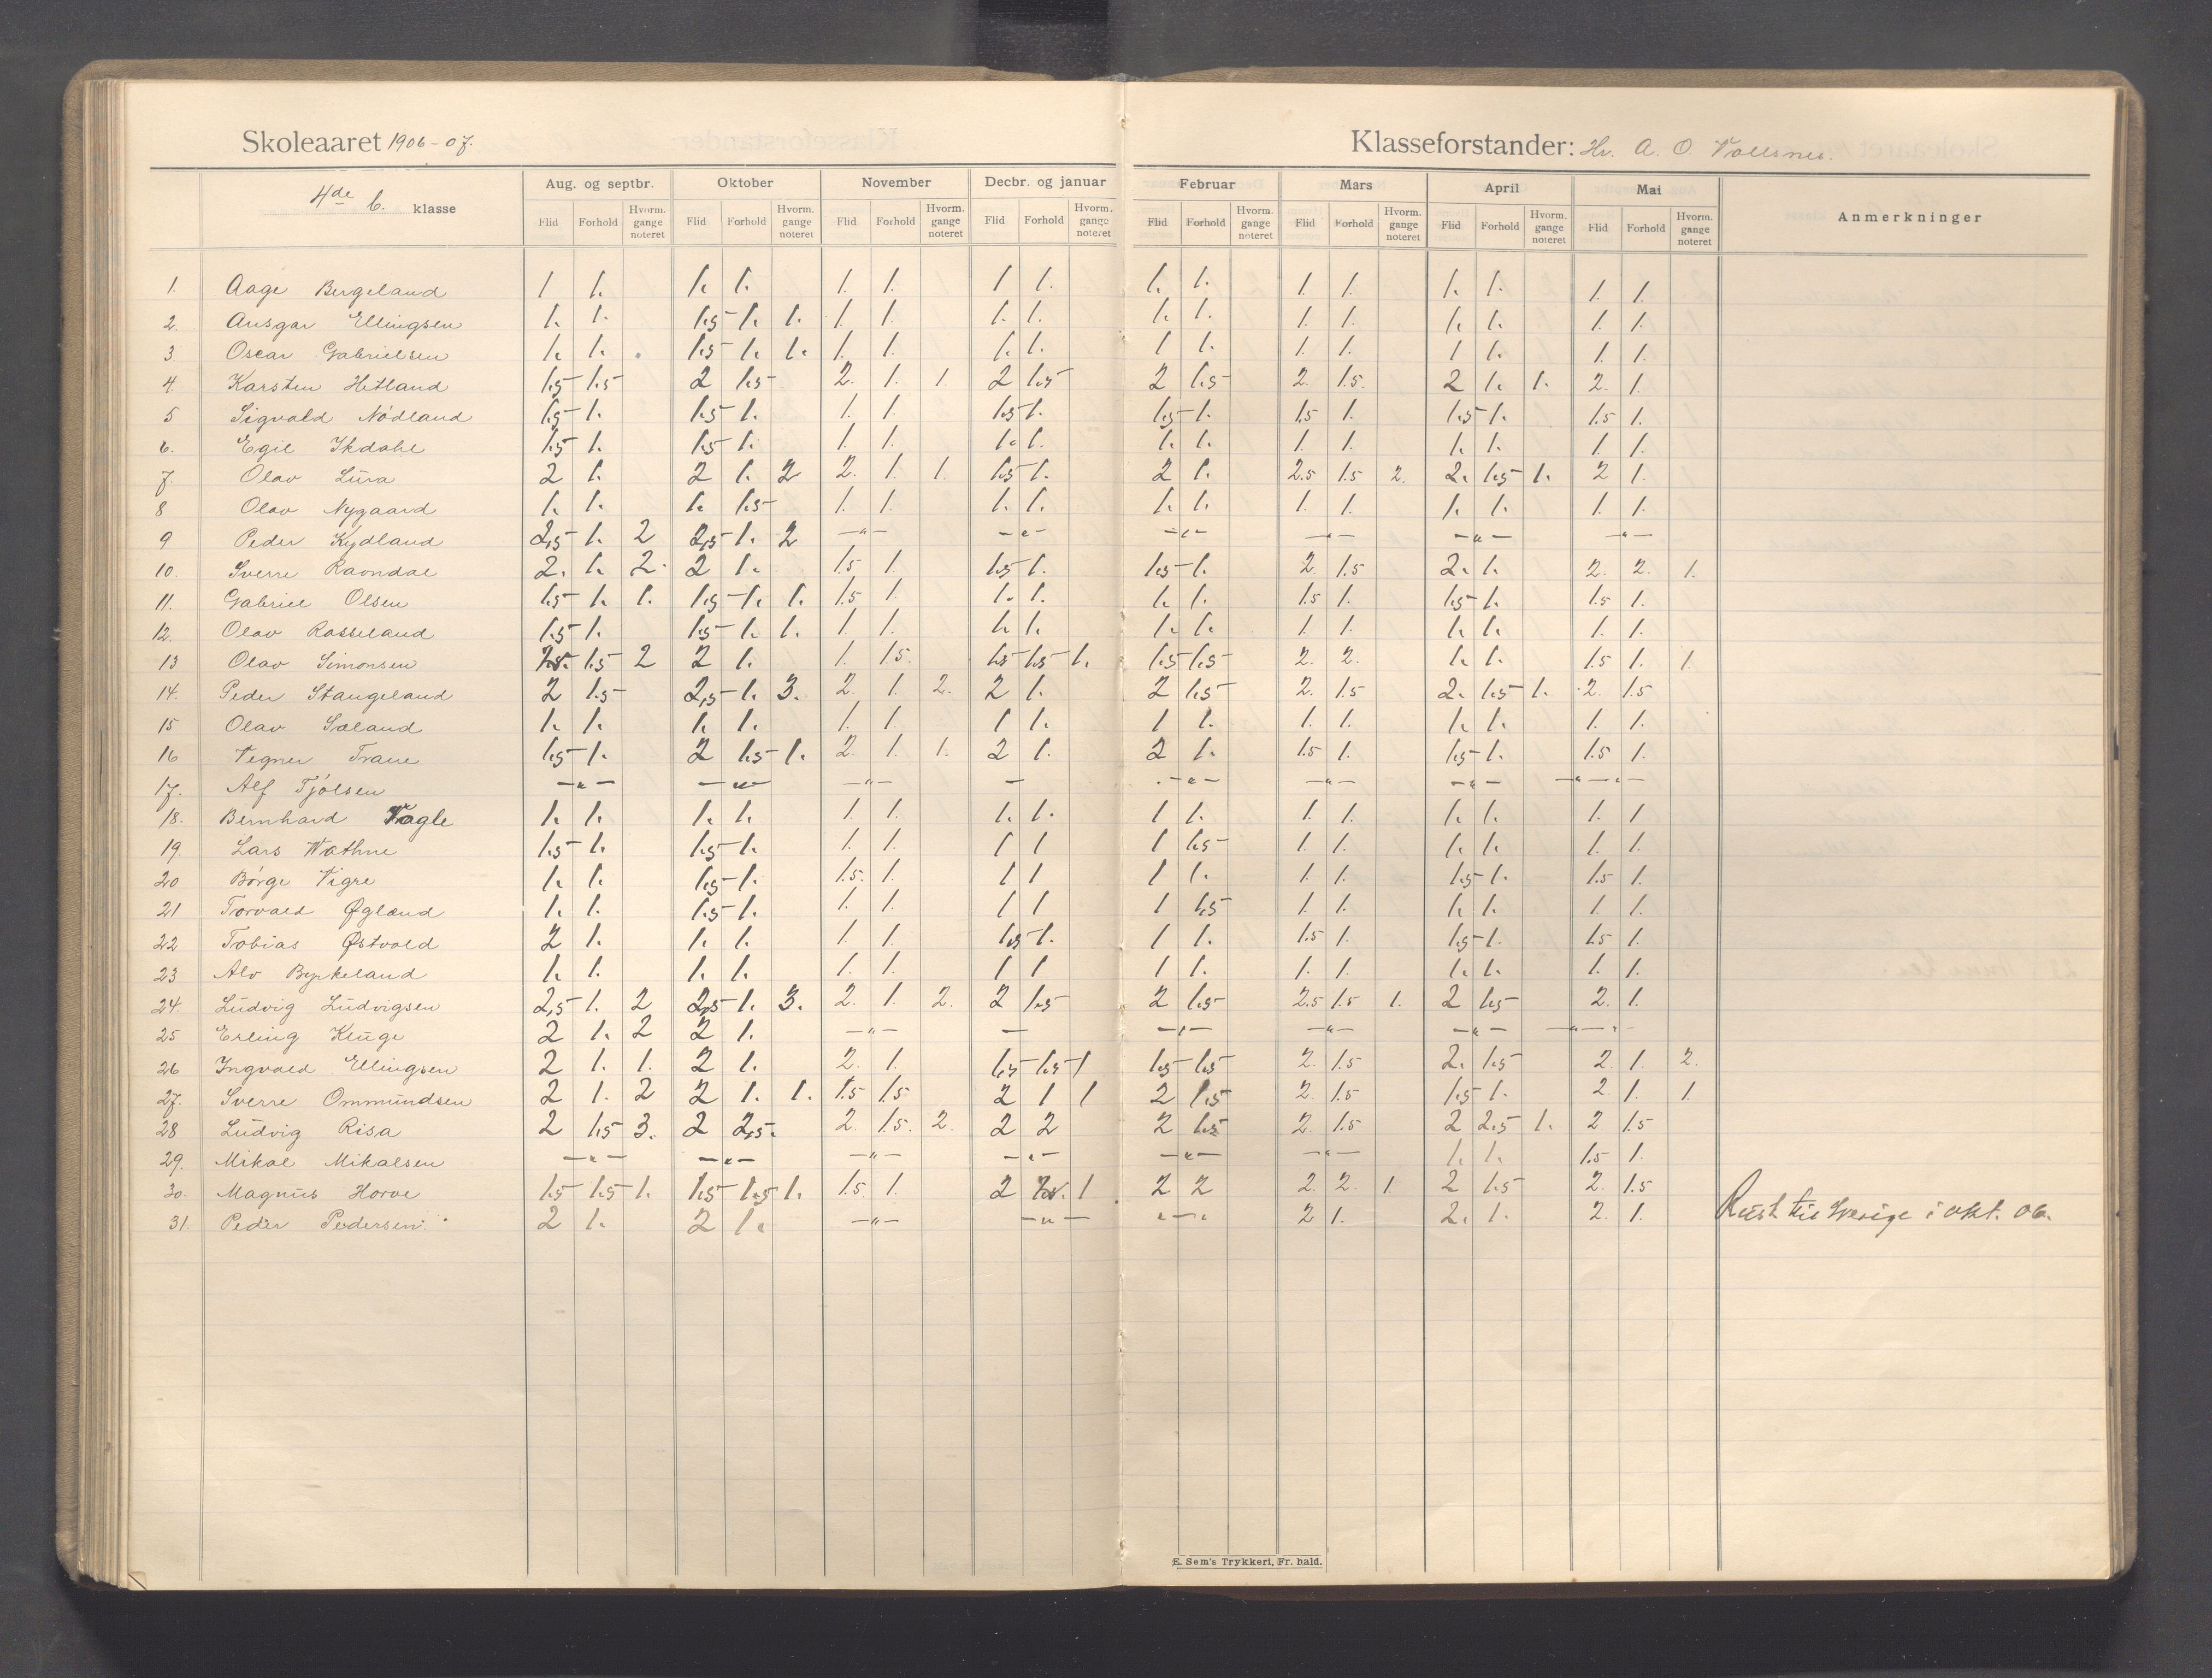 Skoleaaret 1906-07.
Klasseforstander: Hr. A. O. Vollsnes.
4de b. klasse
Aug. og septbr. Oktober November Decbr. og januar Februar Mars April Mai Anmerkninger
Flid Forhold Hvorm. gange noteret Flid Forhold Hvorm. gange noteret Flid Forhold Hvorm. gange noteret Flid Forhold Hvorm. gange noteret Flid Forhold Hvorm. gange noteret Flid Forhold Hvorm. gange noteret Flid Forhold Hvorm. gange noteret Flid Forhold Hvorm. gange noteret
1. Aage Bergeland 1 1. 1. 1. 1. 1. 1 1. 1. 1. 1. 1. 1. 1. 1. 1.
2. Ansgar Ellingsen 1. 1. 1.5 1. 1. 1. 1. 1. 1. 1. 1. 1. 1. 1. 1. 1. 1.
3 Oscar Gabrielsen 1. 1. 1.5 1. 1. 1. 1. 1. 1. 1 1. 1. 1. 1 1. 1. 1.
4. Karsten Hetland 1.5 1.5 2 1.5 2. 1. 1. 2 1.5 2 1.5 2. 1.5. 2 1. 1. 2. 1.
5 Sigvald Nódland 1.5 1. 1.5 1. 1. 1. 1.5 1. 1.5 1. 1.5 1. 1.5 1. 1.5 1.
6. Egil Ikdahl 1.5 1. 1.5 1. 1. 1. 1. 1. 1. 1. 1. 1. 1. 1. 1. 1.
7. Olav Lura 2 1. 2 1. 2 2. 1. 1. 1.5 1. 2 1. 2.5 1.5 2. 2. 1.5 1. 2 1.
8 Olav Nygaard 1. 1. 1. 1.5 1. 1. 1. 1. 1. 1. 1. 1. 1. 1. 1. 1.
9 Peder Kydland 2,5 1. 2 2,5 1. 2 —"— —"— —"— —"— —"— —"—
10. Sverre Ravndal 2. 1. 2. 2 1. 1.5 1. 1.5 1. 1.5 1. 2. 1.5 2. 1. 2. 2. 1.
11. Gabriel Olsen 1.5 1. 1. 1.5 1. 1. 1.5 1. 1. 1. 1. 1. 1.5 1. 1.5 1. 1.5 1.
12. Olav Rosseland 1.5 1. 1.5 1. 1. 1. 1. 1. 1. 1. 1. 1. 1. 1. 1. 1. 1.
13 Olav Simonsen 1.5 2 2 1. 1. 1.5. 1.5 1.5 1. 1.5 1.5 2. 2. 1. 1. 1.5 1. 1.
14. Peder Stangeland 2 1.5 2,5 1. 3. 2. 1. 2. 2 1. 2 1.5 2. 1.5 2. 1.5 1. 2. 1.5
15 Olav Sæland 1. 1. 1. 1. 1. 1. 1 1. 1 1. 1. 1. 1. 1. 1. 1.
16 Vegner Trane 1.5 1. 2 1.5 1. 2. 1. 1. 2 1. 2 1. 1.5 1. 1.5 1. 1.5 1.
17. Alf Tjólsen —"— —"— —"— — —"— —"— —"— —"—"—
18. Bernhard Vagle 1. 1. 1. 1. 1. 1. 1. 1. 1 1. 1. 1. 1. 1. 1. 1
19. Lars Wathne 1.5 1. 1.5 1. 1. 1. 1 1 1 1.5 1. 1. 1. 1. 1. 1.
20 Börge Vigre 1. 1. 1.5 1. 1.5. 1. 1 1 1 1. 1. 1. 1.5 1. 1.5 1.
21 Torvald Øglænd 1. 1. 1.5 1. 1. 1. 1 1 1 1.5 1. 1. 1. 1. 1. 1.
22 Tobias Østvold 2 1. 1. 1. 1. 1. 1.5 1. 1 1. 1.5 1. 1.5 1. 1.5 1.
23 Alv Byrkeland 1. 1. 1. 1. 1. 1. 1 1 1 1. 1. 1. 1. 1. 1. 1.
24. Ludvig Ludvigsen 2,5 1. 2 2,5 1. 3. 2. 1. 2. 2 1.5 2 1.5 2.5 1.5 1. 2 1.5 2. 1.
25 Erling Kluge 2 1. 2 2 1. —"— — —"— —"— —"— —"—
26 Ingvald Ellingsen 2 1. 1. 2 1. 2. 1. 1.5 1.5 1 1.5 1.5 2. 1.5 2. 1.5 2. 1. 2.
27. Sverre Ommundsen 2 1. 2 2 1. 1. 1.5 1.5. 2 1 1 2 1.5 2. 1.5 1.5 1. 2. 1. 1.
28 Ludvig Risa 2 1.5 3. 2 2,5. 2. 1.5. 2. 2 2 2 1.5 2. 1.5 2 2.5 1. 2 1.5
29. Mikal Mikalsen —"— —"— —"— —"— —"— —"— 1. 1. 1.5 1.
30. Magnus Horve 1.5 1.5 1. 1.5 1.5 1. 1.5. 1. 2 1 2 2 2. 2. 1. 2 1.5 2. 1.5
31. Peder Pedersen. 2 1. 2 1. —"— —"— "—" 2 1. 2. 1. 2. 1. Reist til Sverige i okt. 06.
E. Sem's Trykkeri, Fr. hald.